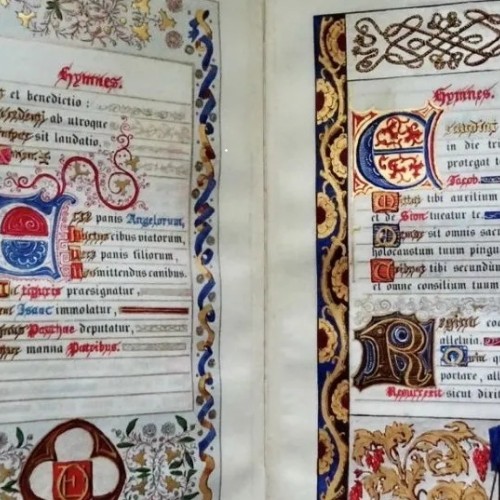 Hymnes.
et benedictio :
ab utroque
sit laudatio.
panis Angelorum,
Factus cibus viatorum,
Vere panis filiorum,
Non mittendus canibus.
In figuris praesignatur,
Isaac immolatur,
Paschae deputatur,
manna Patribus.
Hymnes.
in die tri
protegat t
Jacob.
Mittat tibi auxilium
et de Sion tueatur te
Memor sit omnis sac
holocaustum tuum pingu
Tribuat tibi secundum
et omne consilium tuum
Regina co
alleluia. Quia qu
portare, all
Resurrexit sicut dixi